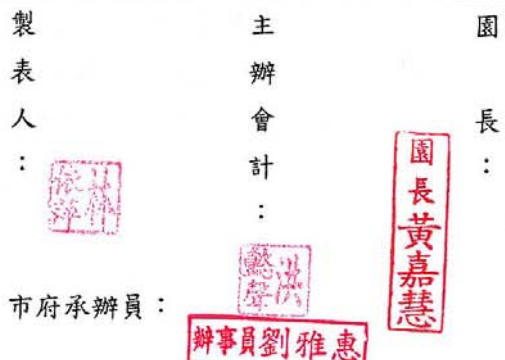 製表人：
林
萍
主辦會計：
洪懿聲
園長：
園長黃嘉慧
市府承辦員：
辦事員劉雅惠